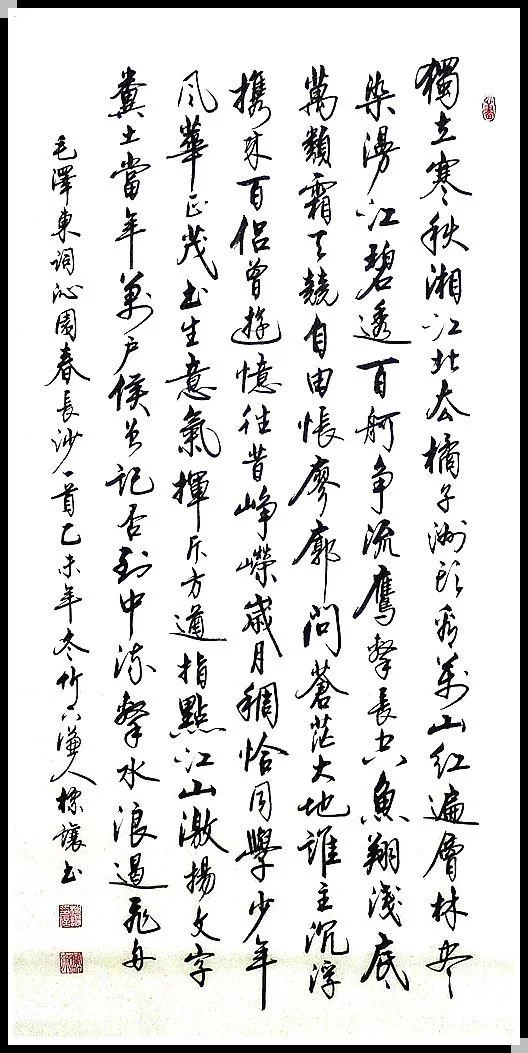 獨立寒秋湘江北去橘子洲头看万山红遍層林尽
染漫江碧透百舸争流鹰擊長空魚翔浅底
萬類霜天競自由悵廖廓問蒼茫大地誰主沉浮
携来百侣曾遊憶往昔峥嶸歲月稠恰同學少年
风華正茂书生意氣揮斥方遒指點江山激揚文字
糞土當年万户侯曾記否到中流擊水浪遏飛舟
毛澤東詞沁園春長沙一首乙未年冬竹人书